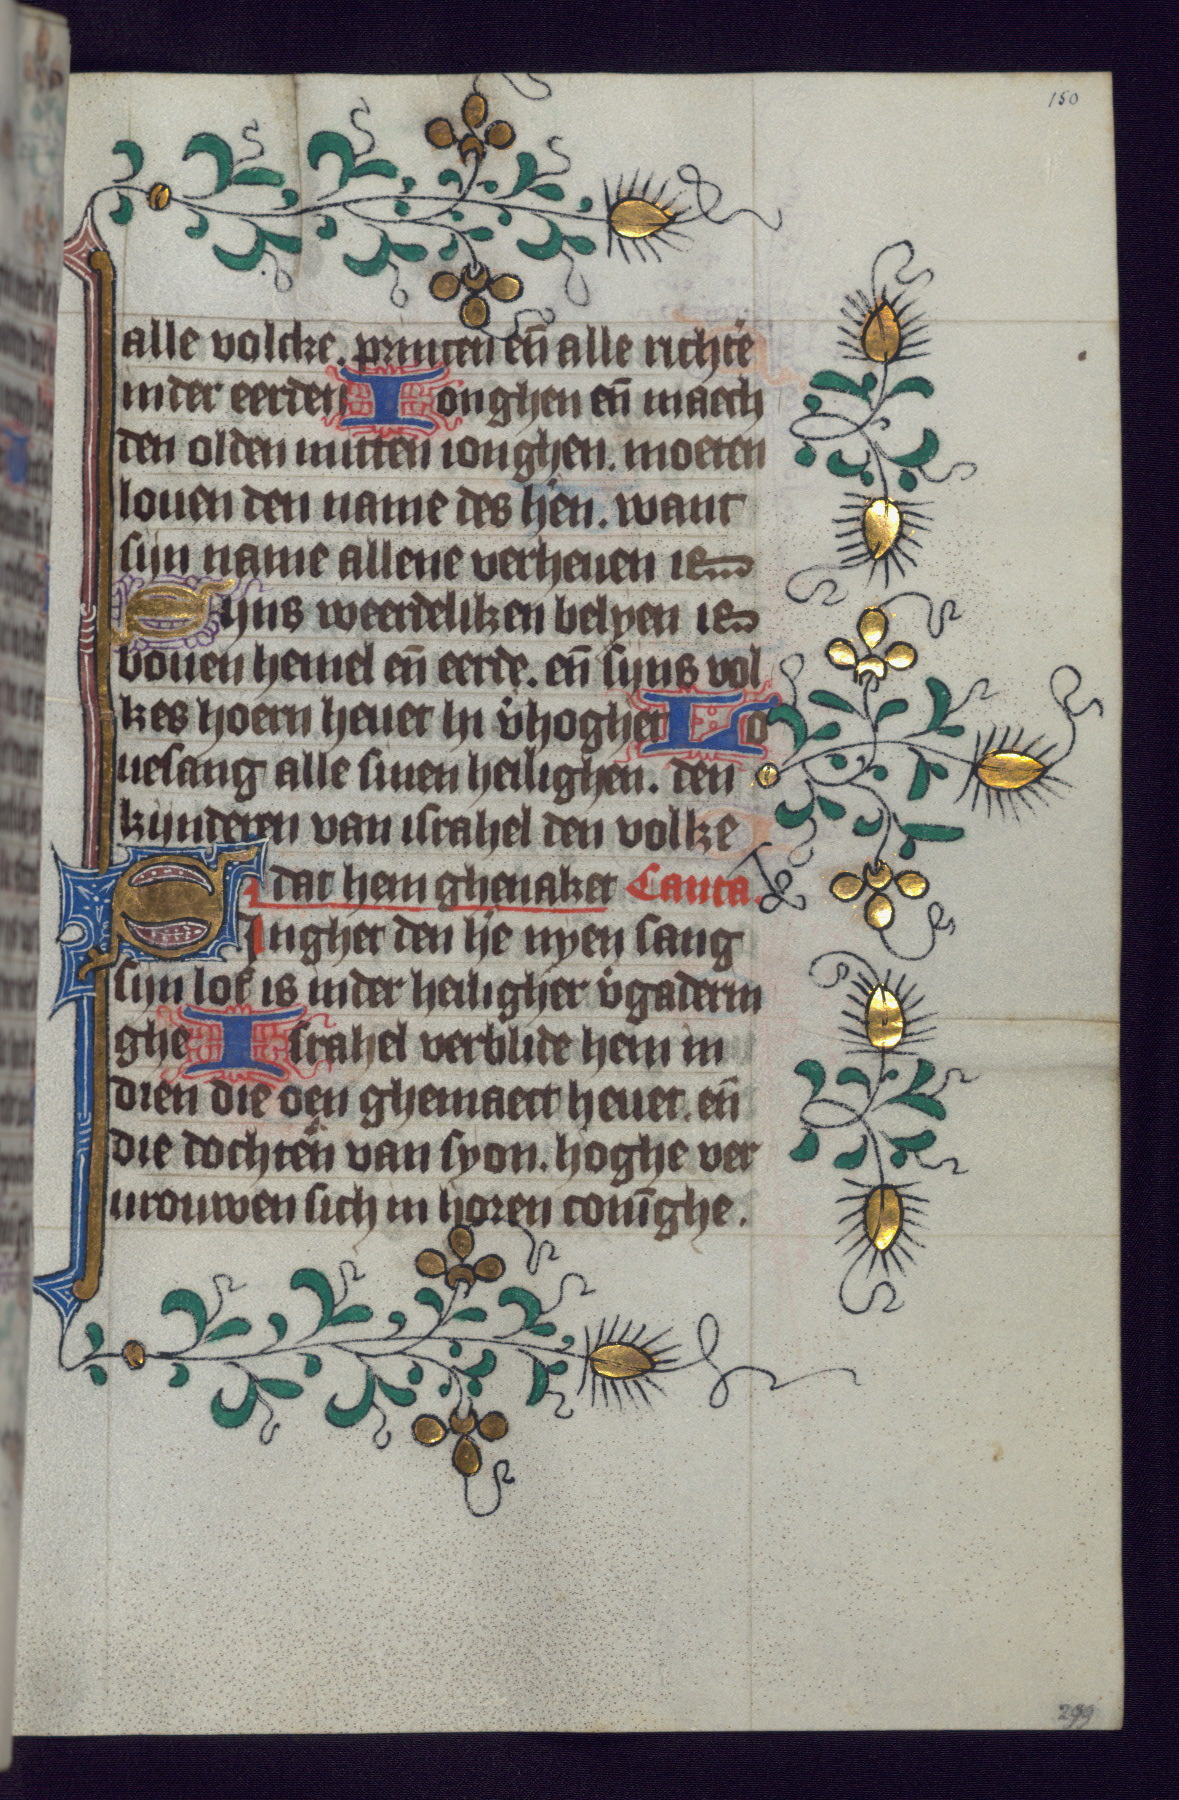 150
alle volcke. princen en̄ alle richte᷑
in der eerden Ionghen en̄ maech
den olden mitten ionghen. moeten
louen den name des he᷑n. want
sijn name allene verheuen is
Sijns weerdeliken belyen is
bouen hemel en̄ eerde. en̄ sijns vol
kes hoern heuet hi v᷑hoghet Lo
uesang alle sinen heilighen. den
kijnderen van israhel den volke
dat hem ghenaket Canta.
Singhet den he᷑ nyen sang
sijn lof is in der heiligher v᷑gaderin
ghe Israhel verblide hem in
dien die oen ghemaect heuet. en̄
die dochte᷑n van syon. hoghe ver
urouwen sich in horen conīghe.
299